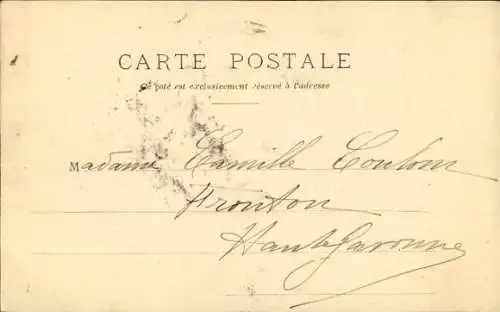 CARTE POSTALE
Ce côté est exclusivement réservé à l'adresse
Madame Camille Coulom
Fronton
Haute Garonne